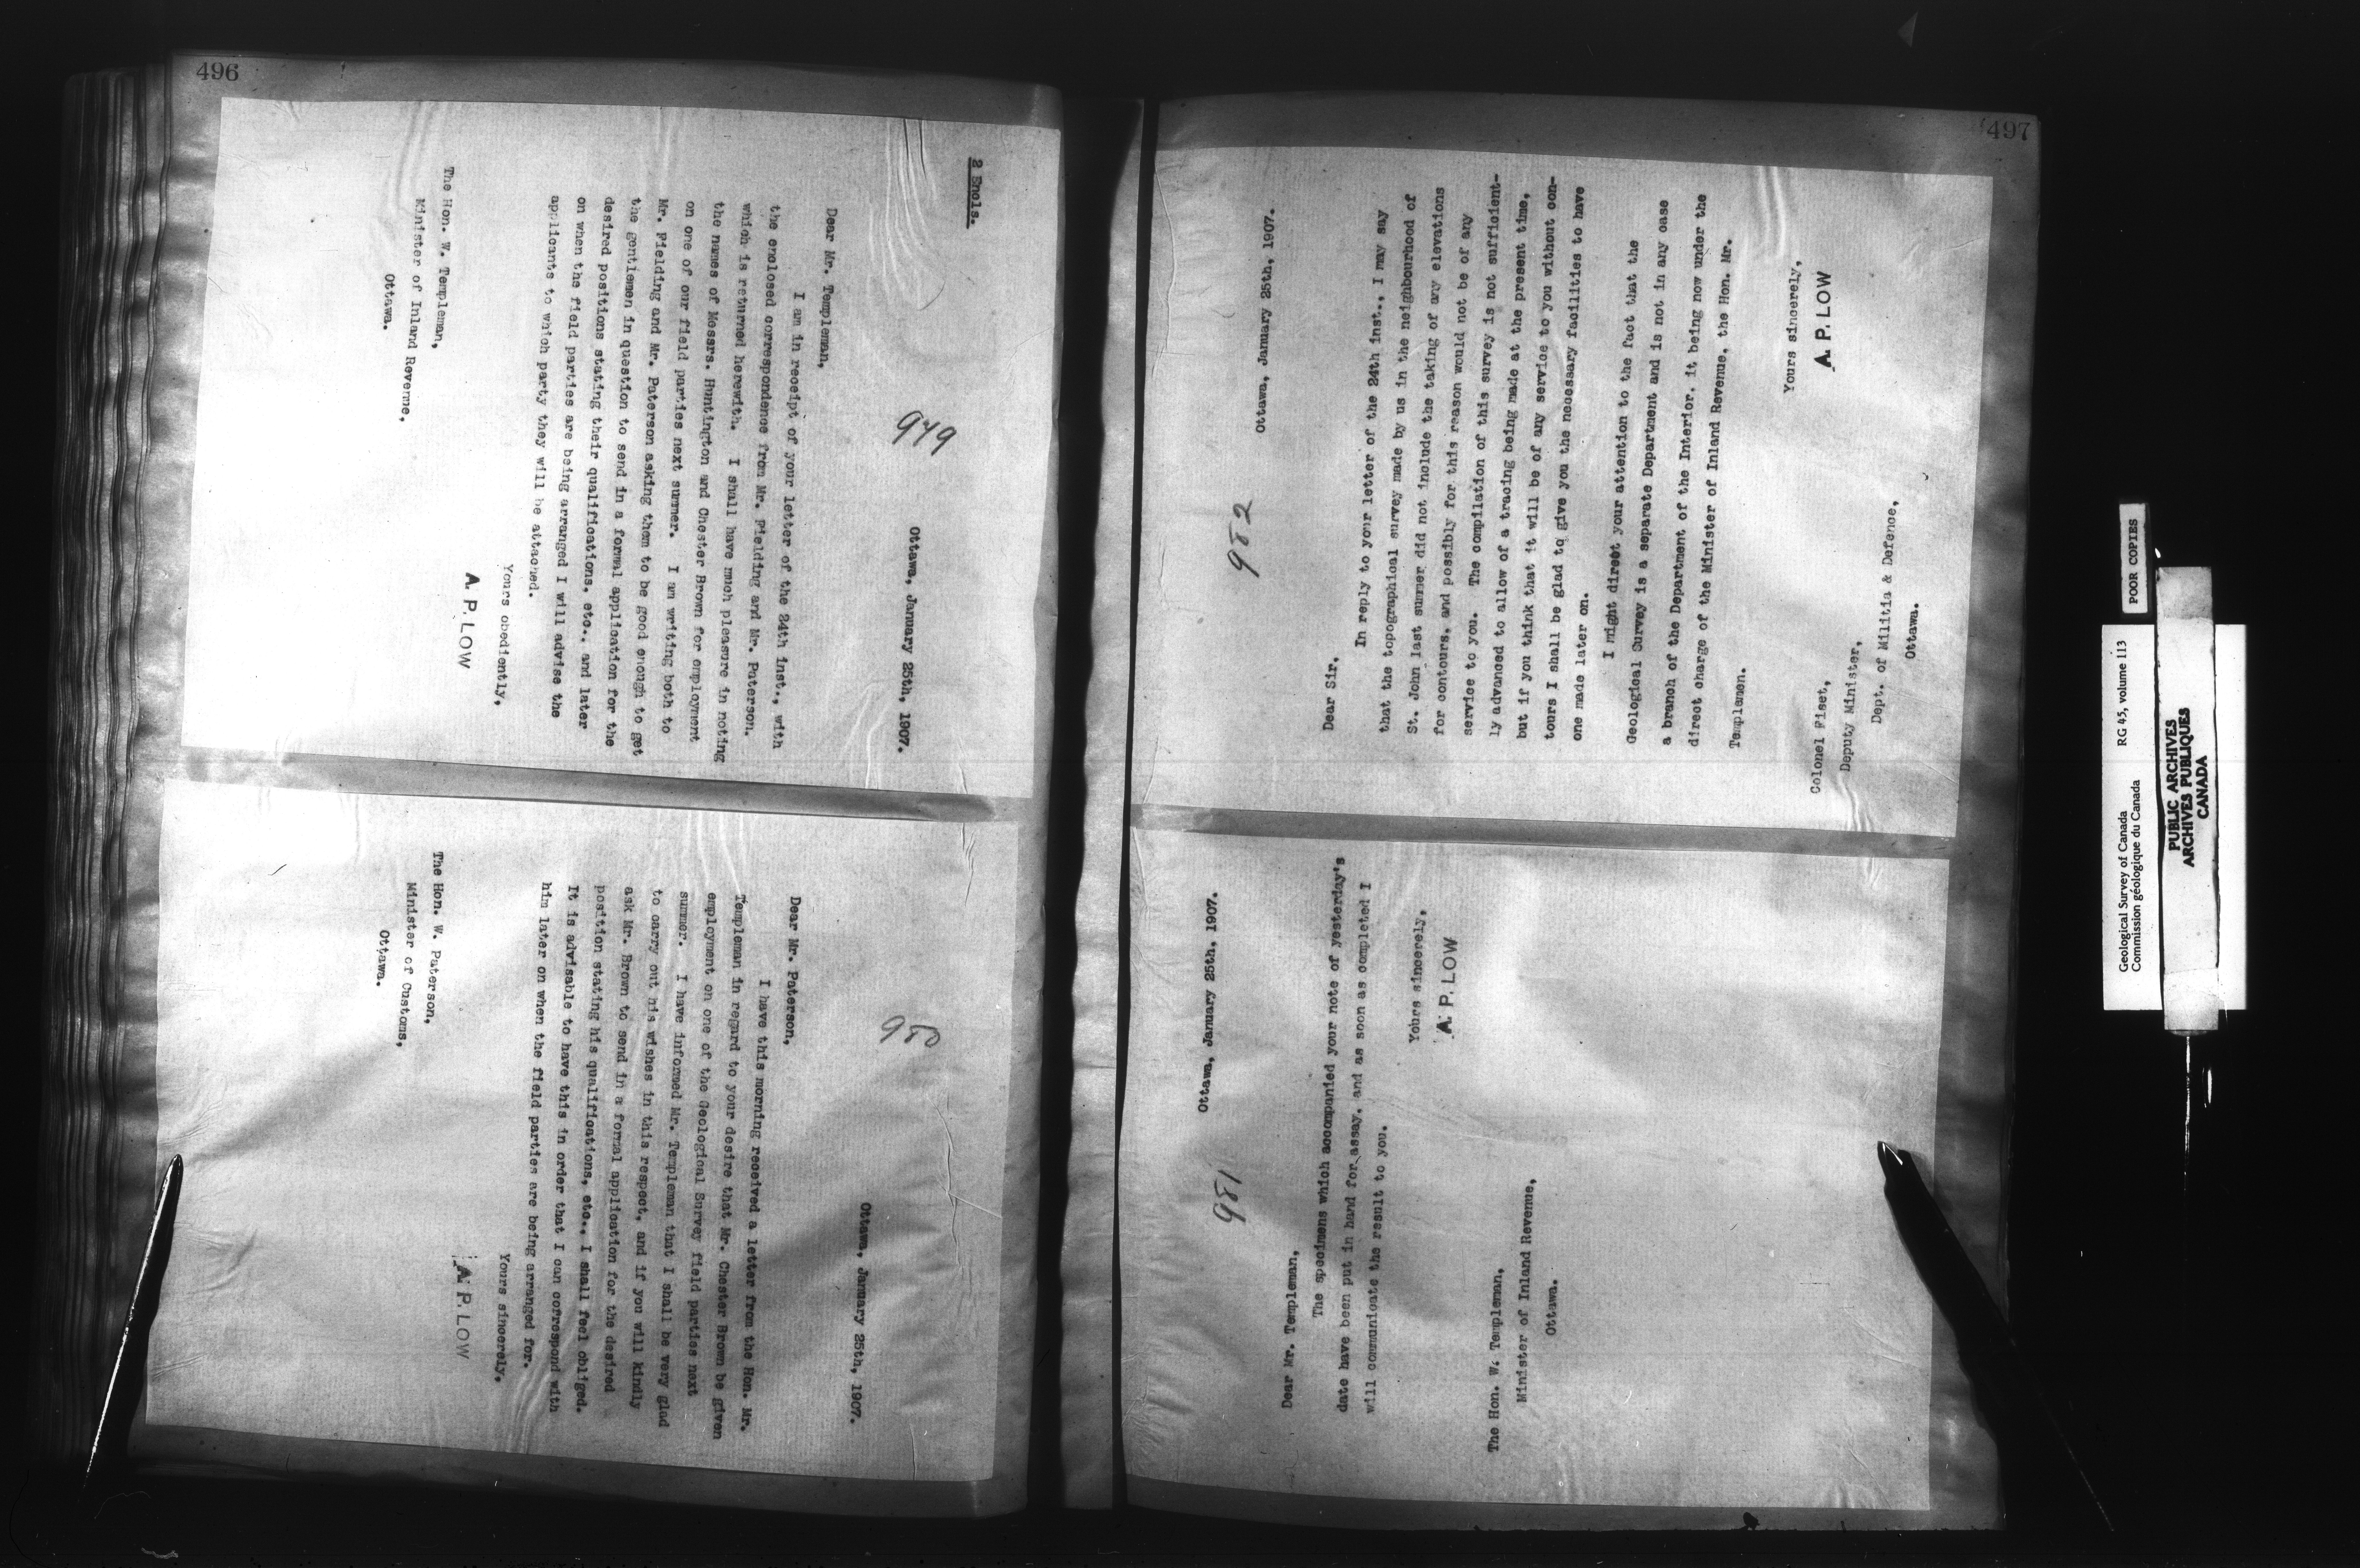 496
2 Encls.
949
Ottawa, January 25th, 1907.
Dear Mr. Templeman,
I am in receipt of your letter of the 24th inst., with
the enclosed correspondence from Mr. Fielding and Mr. Paterson.
which is returned herewith. I shall have much pleasure in noting
the names of Messrs. Huntington and Chester Brown for employment
on one of our field parties next summer. I am writing both to
Mr. Fielding and Mr. Paterson asking them to be good enough to get
the gentlemen in question to send in a formal application for the
desired positions stating their qualifications, etc., and later
on when the field parties are being arranged I will advise the
applicants to which party they will be attached.
Yours obediently,
A. P. LOW
The Hon. W. Templeman,
Minister of Inland Revenue,
Ottawa.
950
Ottawa, January 25th, 1907.
Dear Mr. Paterson,
I have this morning received a letter from the Hon. Mr.
Templeman in regard to your desire that Mr. Chester Brown be given
employment on one of the Geological Survey field parties next
summer. I have informed Mr. Templeman that I shall be very glad
to carry out his wishes in this respect, and if you will kindly
ask Mr. Brown to send in a formal application for the desired
position stating his qualifications, etc., I shall feel obliged.
It is advisable to have this in order that I can correspond with
him later on when the field parties are being arranged for.
Yours sincerely,
A. P. LOW
The Hon. W. Paterson,
Minister of Customs,
Ottawa.
497
981
Ottawa, January 25th, 1907.
Dear Mr. Templeman,
The specimens which accompanied your note of yesterday's
date have been put in hand for assay, and as soon as completed I
will communicate the result to you.
Yours sincerely,
A. P. LOW
The Hon. W. Templeman,
Minister of Inland Revenue,
Ottawa.
982
Ottawa, January 25th, 1907.
Dear Sir,
In reply to your letter of the 24th inst., I may say
that the topographical survey made by us in the neighbourhood of
St. John last summer did not include the taking of any elevations
for contours, and possibly for this reason would not be of any
service to you. The compilation of this survey is not sufficient-
ly advanced to allow of a tracing being made at the present time,
but if you think that it will be of any service to you without con-
tours I shall be glad to give you the necessary facilities to have
one made later on.
I might direct your attention to the fact that the
Geological Survey is a separate Department and is not in any case
a branch of the Department of the Interior, it being now under the
direct charge of the Minister of Inland Revenue, the Hon. Mr.
Templeman.
Yours sincerely,
A. P. LOW
Colonel Fiset,
Deputy Minister,
Dept. of Militia & Defence,
Ottawa.
POOR COPIES
Geological Survey of Canada RG 45, volume 113
Commission géologique du Canada
PUBLIC ARCHIVES
ARCHIVES PUBLIQUES
CANADA